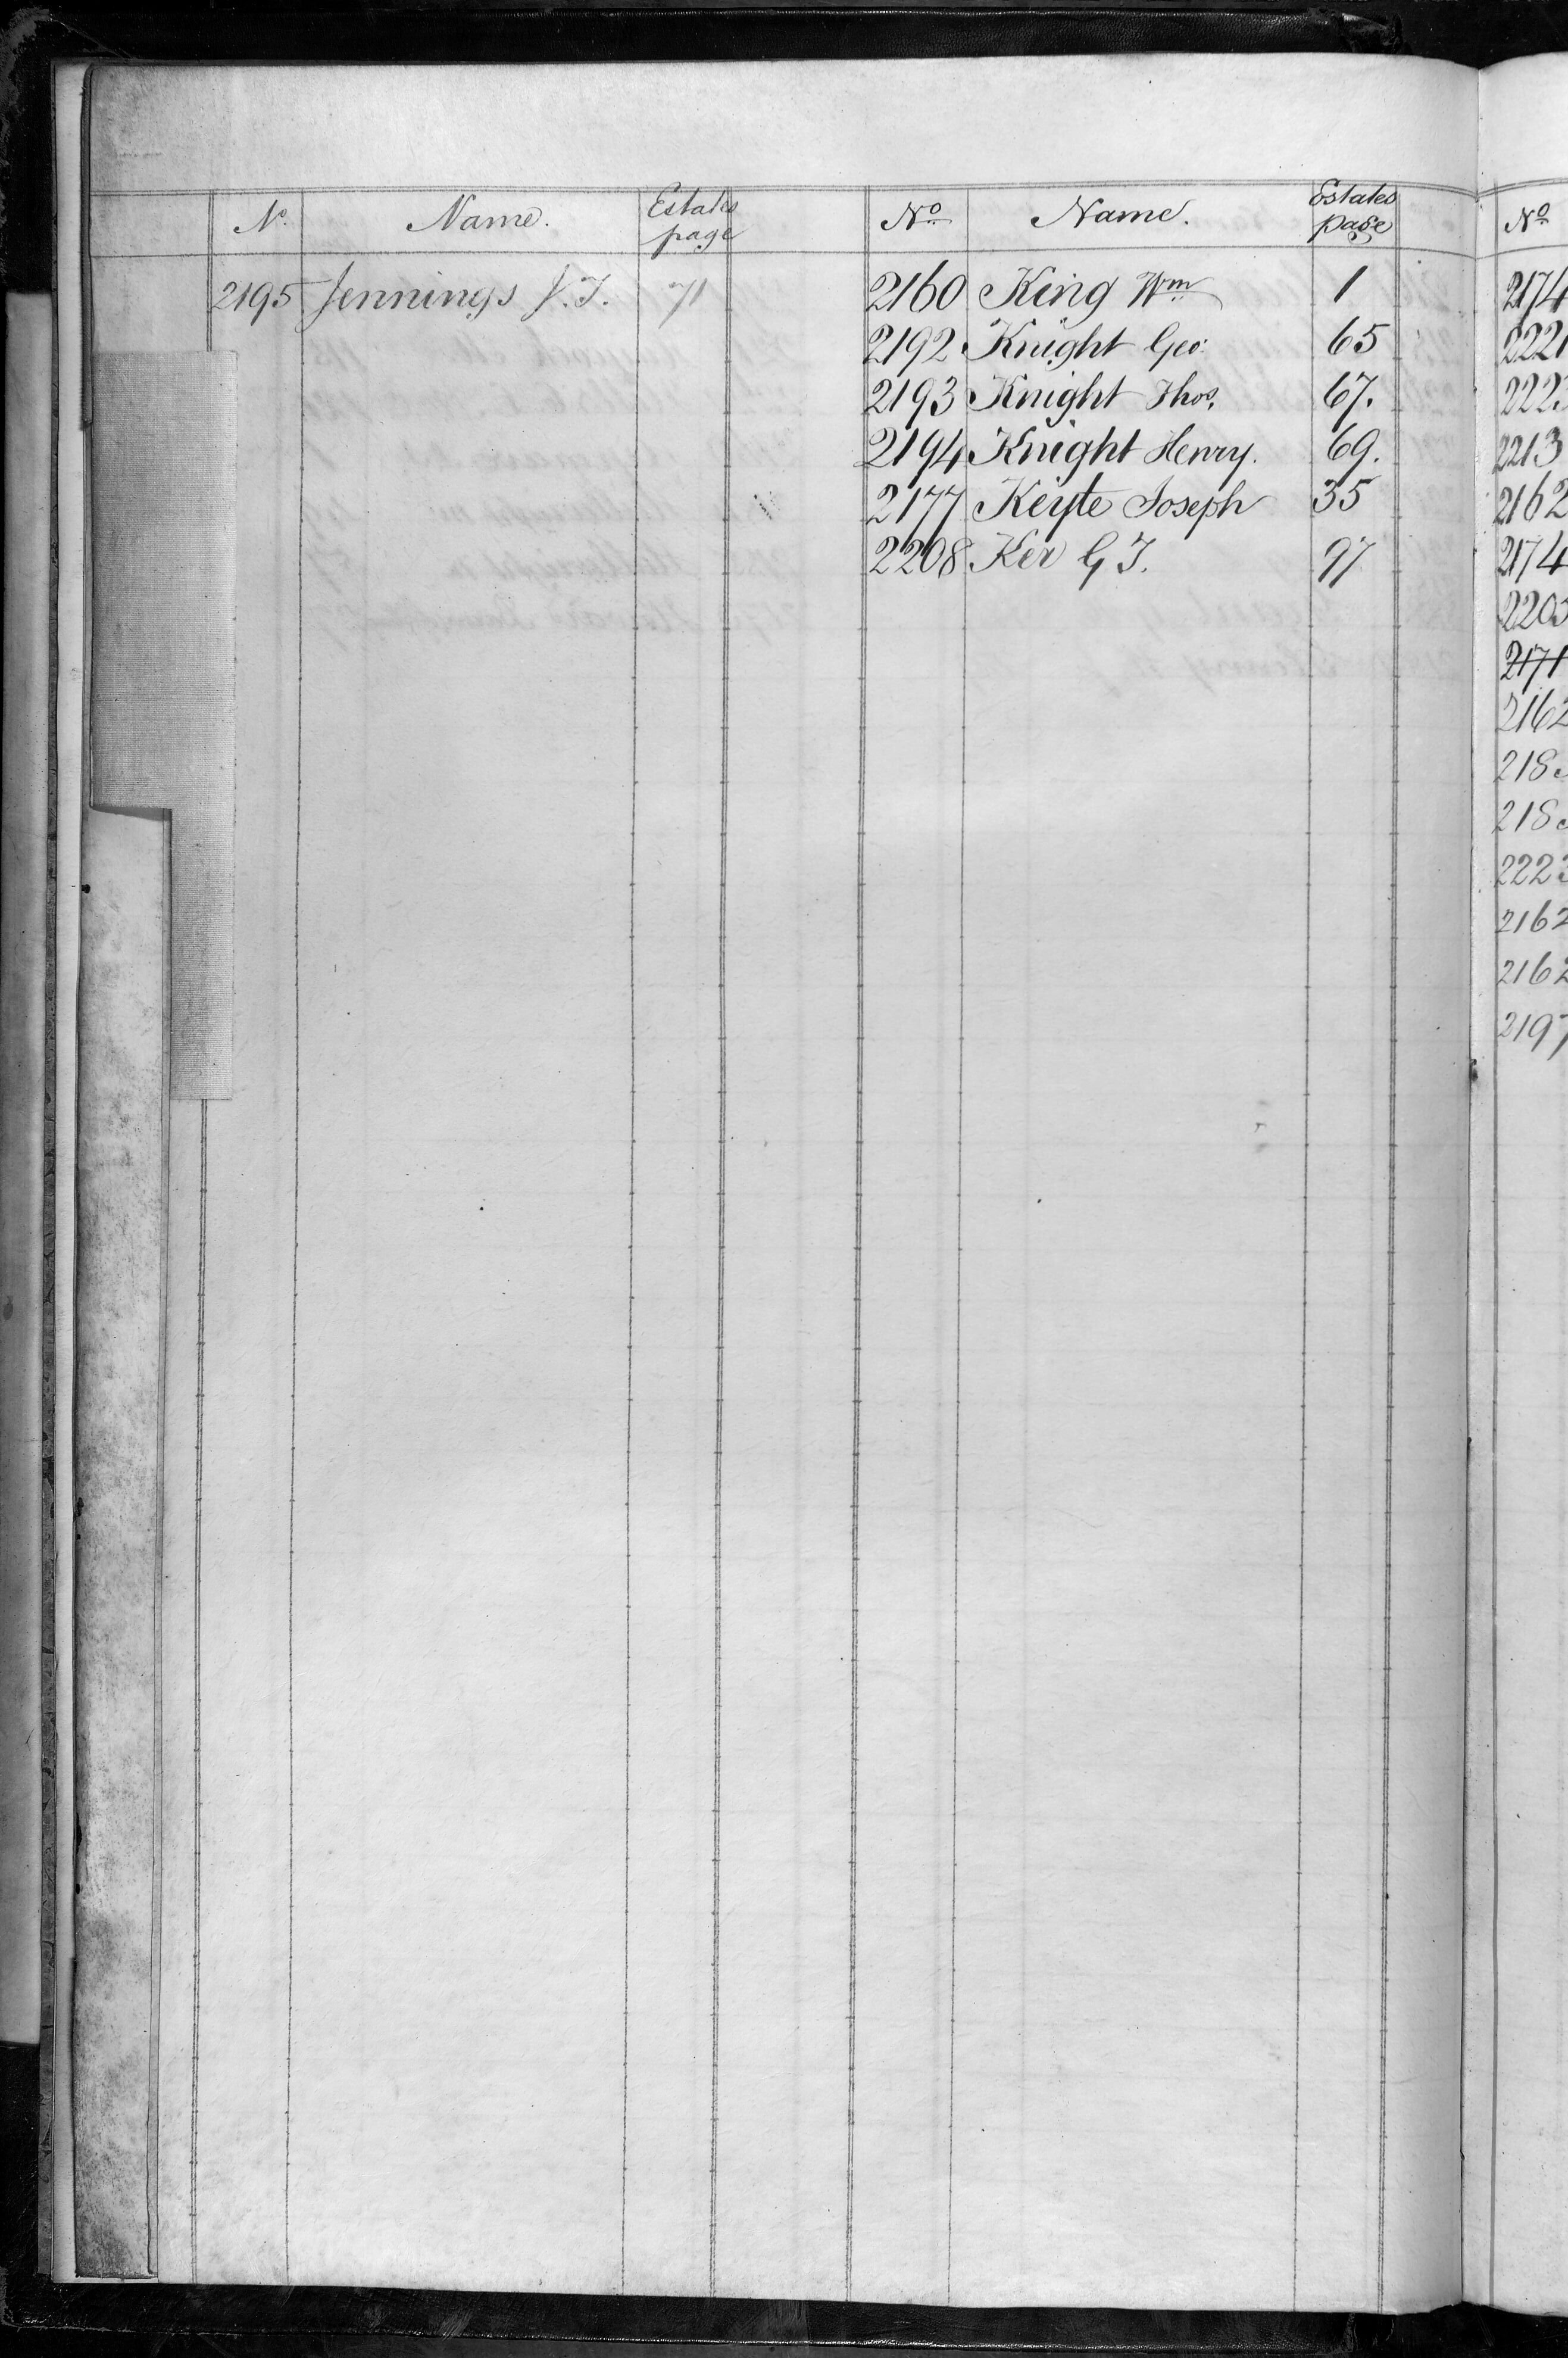 No. Name. Estates page
2195 Jennings J. T. 71
No. Name. Estates page
2160 King Wm 1
2192 Knight Geo: 65
2193 Knight Thos. 67.
2194 Knight Henry. 69.
2177 Keyte Joseph 35
2208 Ker G T. 97
No
2174
2221
2213
2162
2174
2203
2171
2162
2162
2162
2197